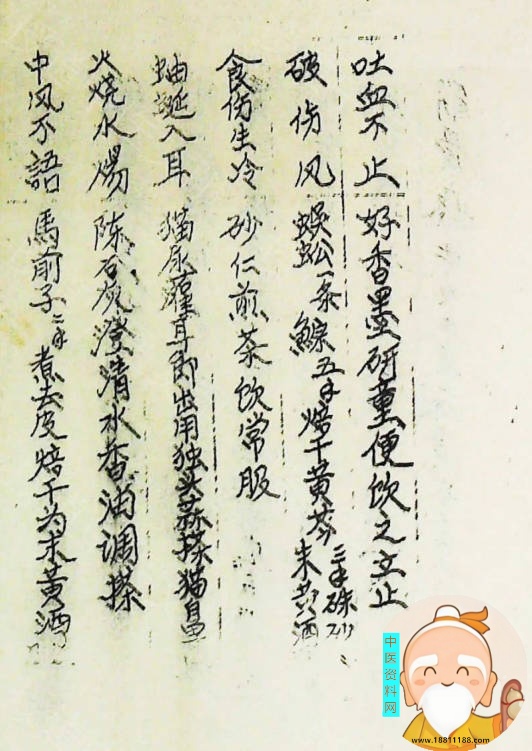 吐血不止 好香墨研童便饮之立止
破伤风 蜈蚣一条 鳔五钱 焙干黄芩三钱 硃砂
末黄酒
食伤生冷 砂仁煎茶饮常服
蚰蜒入耳 猫尿灌耳即出 用独头蒜搽猫鼻
火烧水煬 陈石灰澄清水香油调搽
中风不語 馬前子二钱煮去皮焙干为末黄酒
中医资料网
www.18811188.com